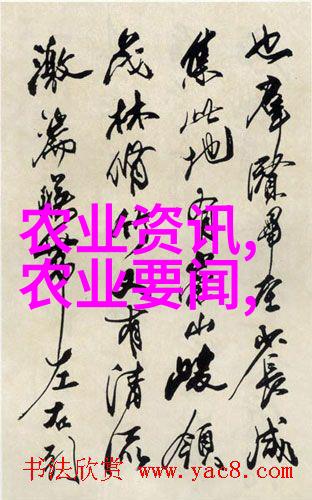 也羣賢畢至少長咸
集此地有崇山峻領
茂林脩竹又有清流
激湍暎帶左右引
农业资讯,
农业要闻,
书法欣赏 www.yac8.com